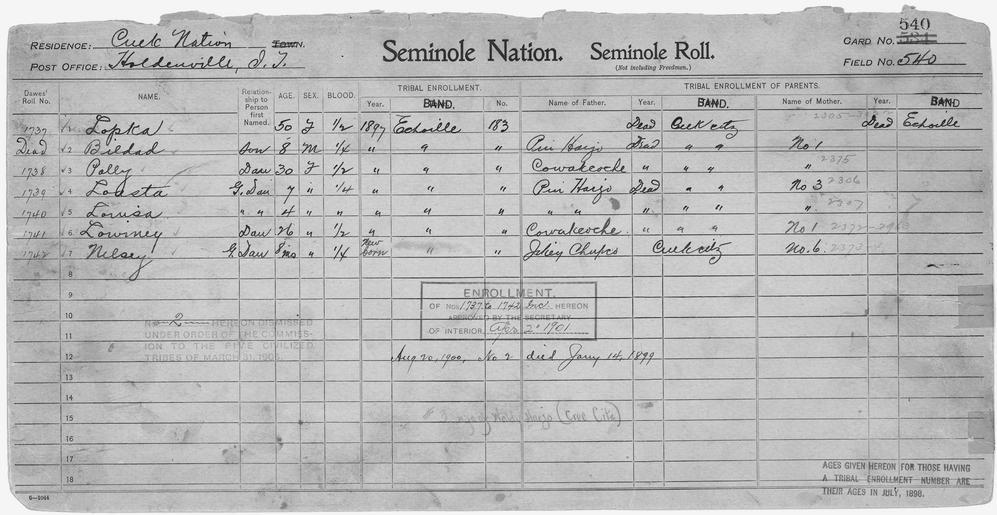 540
RESIDENCE: Creek Nation TOWN. Seminole Nation. Seminole Roll. CARD NO. 534
POST OFFICE: Holdenville, I. T. (Not including Freedmen.) FIELD NO. 540
Dawes' Roll No. NAME. Relationship to Person first Named. AGE. SEX. BLOOD. TRIBAL ENROLLMENT. TRIBAL ENROLLMENT OF PARENTS.
Year. BAND. No. Name of Father. Year. BAND. Name of Mother. Year. BAND
1737 1 Lopka 50 F 1/2 1897 Echoille 183 Dead Creek citz 2305 Dead Echoille
Dead 2 Bildad Son 8 M 1/4 " " " Pin Harjo Dead " " No 1
1738 3 Polly Dau 30 F 1/2 " " " Cowakoche " " " " 2375
1739 4 Lousta G. Dau 7 " 1/4 " " " Pin Harjo Dead " " No 3 2306
1740 5 Louisa " " 4 " " " " " " " " " " " 2307
1741 6 Lowiney Dau 26 " 1/2 " " " Cowakoche " " " No 1 2372
1742 7 Nelsey G. Dau 8 mo " 1/4 New born " " Jikey Chupco Creek citz No. 6 2373
8
9
10
11
12
13
14
15
16
17
18
ENROLLMENT.
OF NOS. 1737 to 1742 Inc. HEREON
APPROVED BY THE SECRETARY
OF INTERIOR Apr 2" 1901
No 2 HEREON DISMISSED
UNDER ORDER OF THE COMMISSION
TO THE FIVE CIVILIZED
TRIBES OF MARCH 31, 1905.
Aug 20, 1900, No 2 died Jany 14, 1899
Harjo (Cree Citz)
6—1044
AGES GIVEN HEREON FOR THOSE HAVING
A TRIBAL ENROLLMENT NUMBER ARE
THEIR AGES IN JULY, 1898.